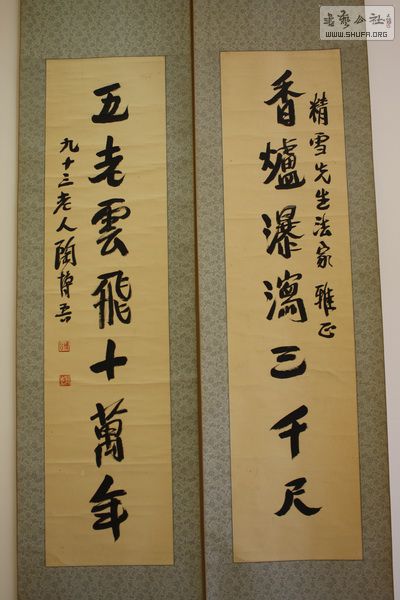 精雪先生法家雅正
香爐瀑瀉三千尺
五老雲飛十萬年
九十三老人陶博吾
書藝公社
WWW.SHUFA.ORG